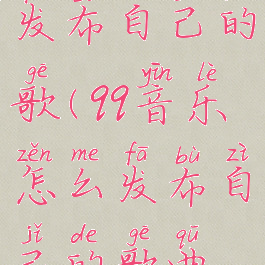 发布自己的
gē yīn lè
歌(99音乐
zěn me fā bù zì
怎么发布自
jǐ de gē qū
己的歌曲